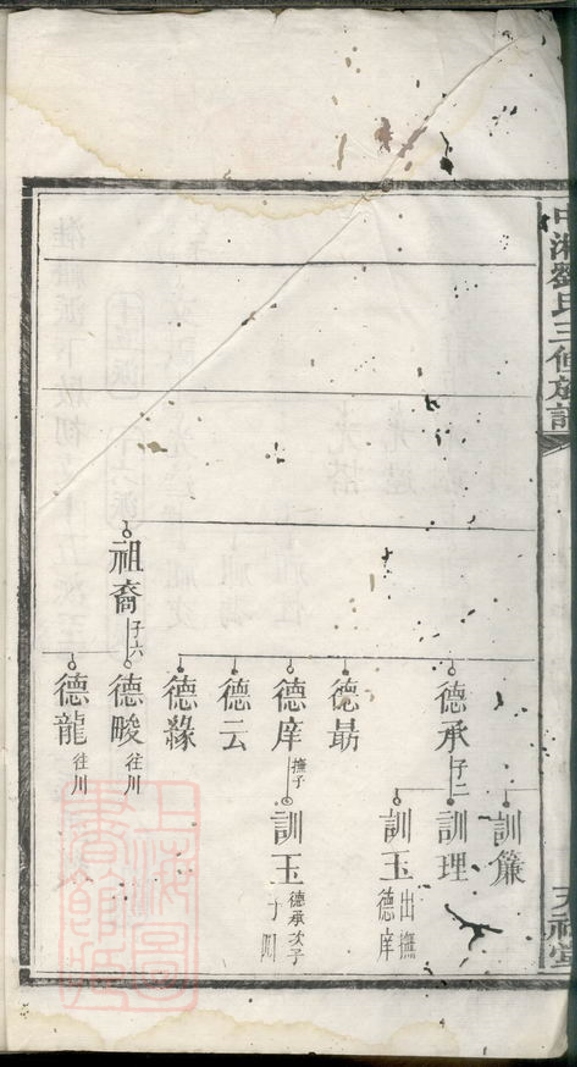 中湘劉氏三修族譜
訓簾
德承
子二
訓理
訓玉
出撫
德庠
德最
德庠
撫子
訓玉
德承次子
子四
德云
德緣
祖裔
子六
德畯
往川
德龍
往川
上海圖書館藏